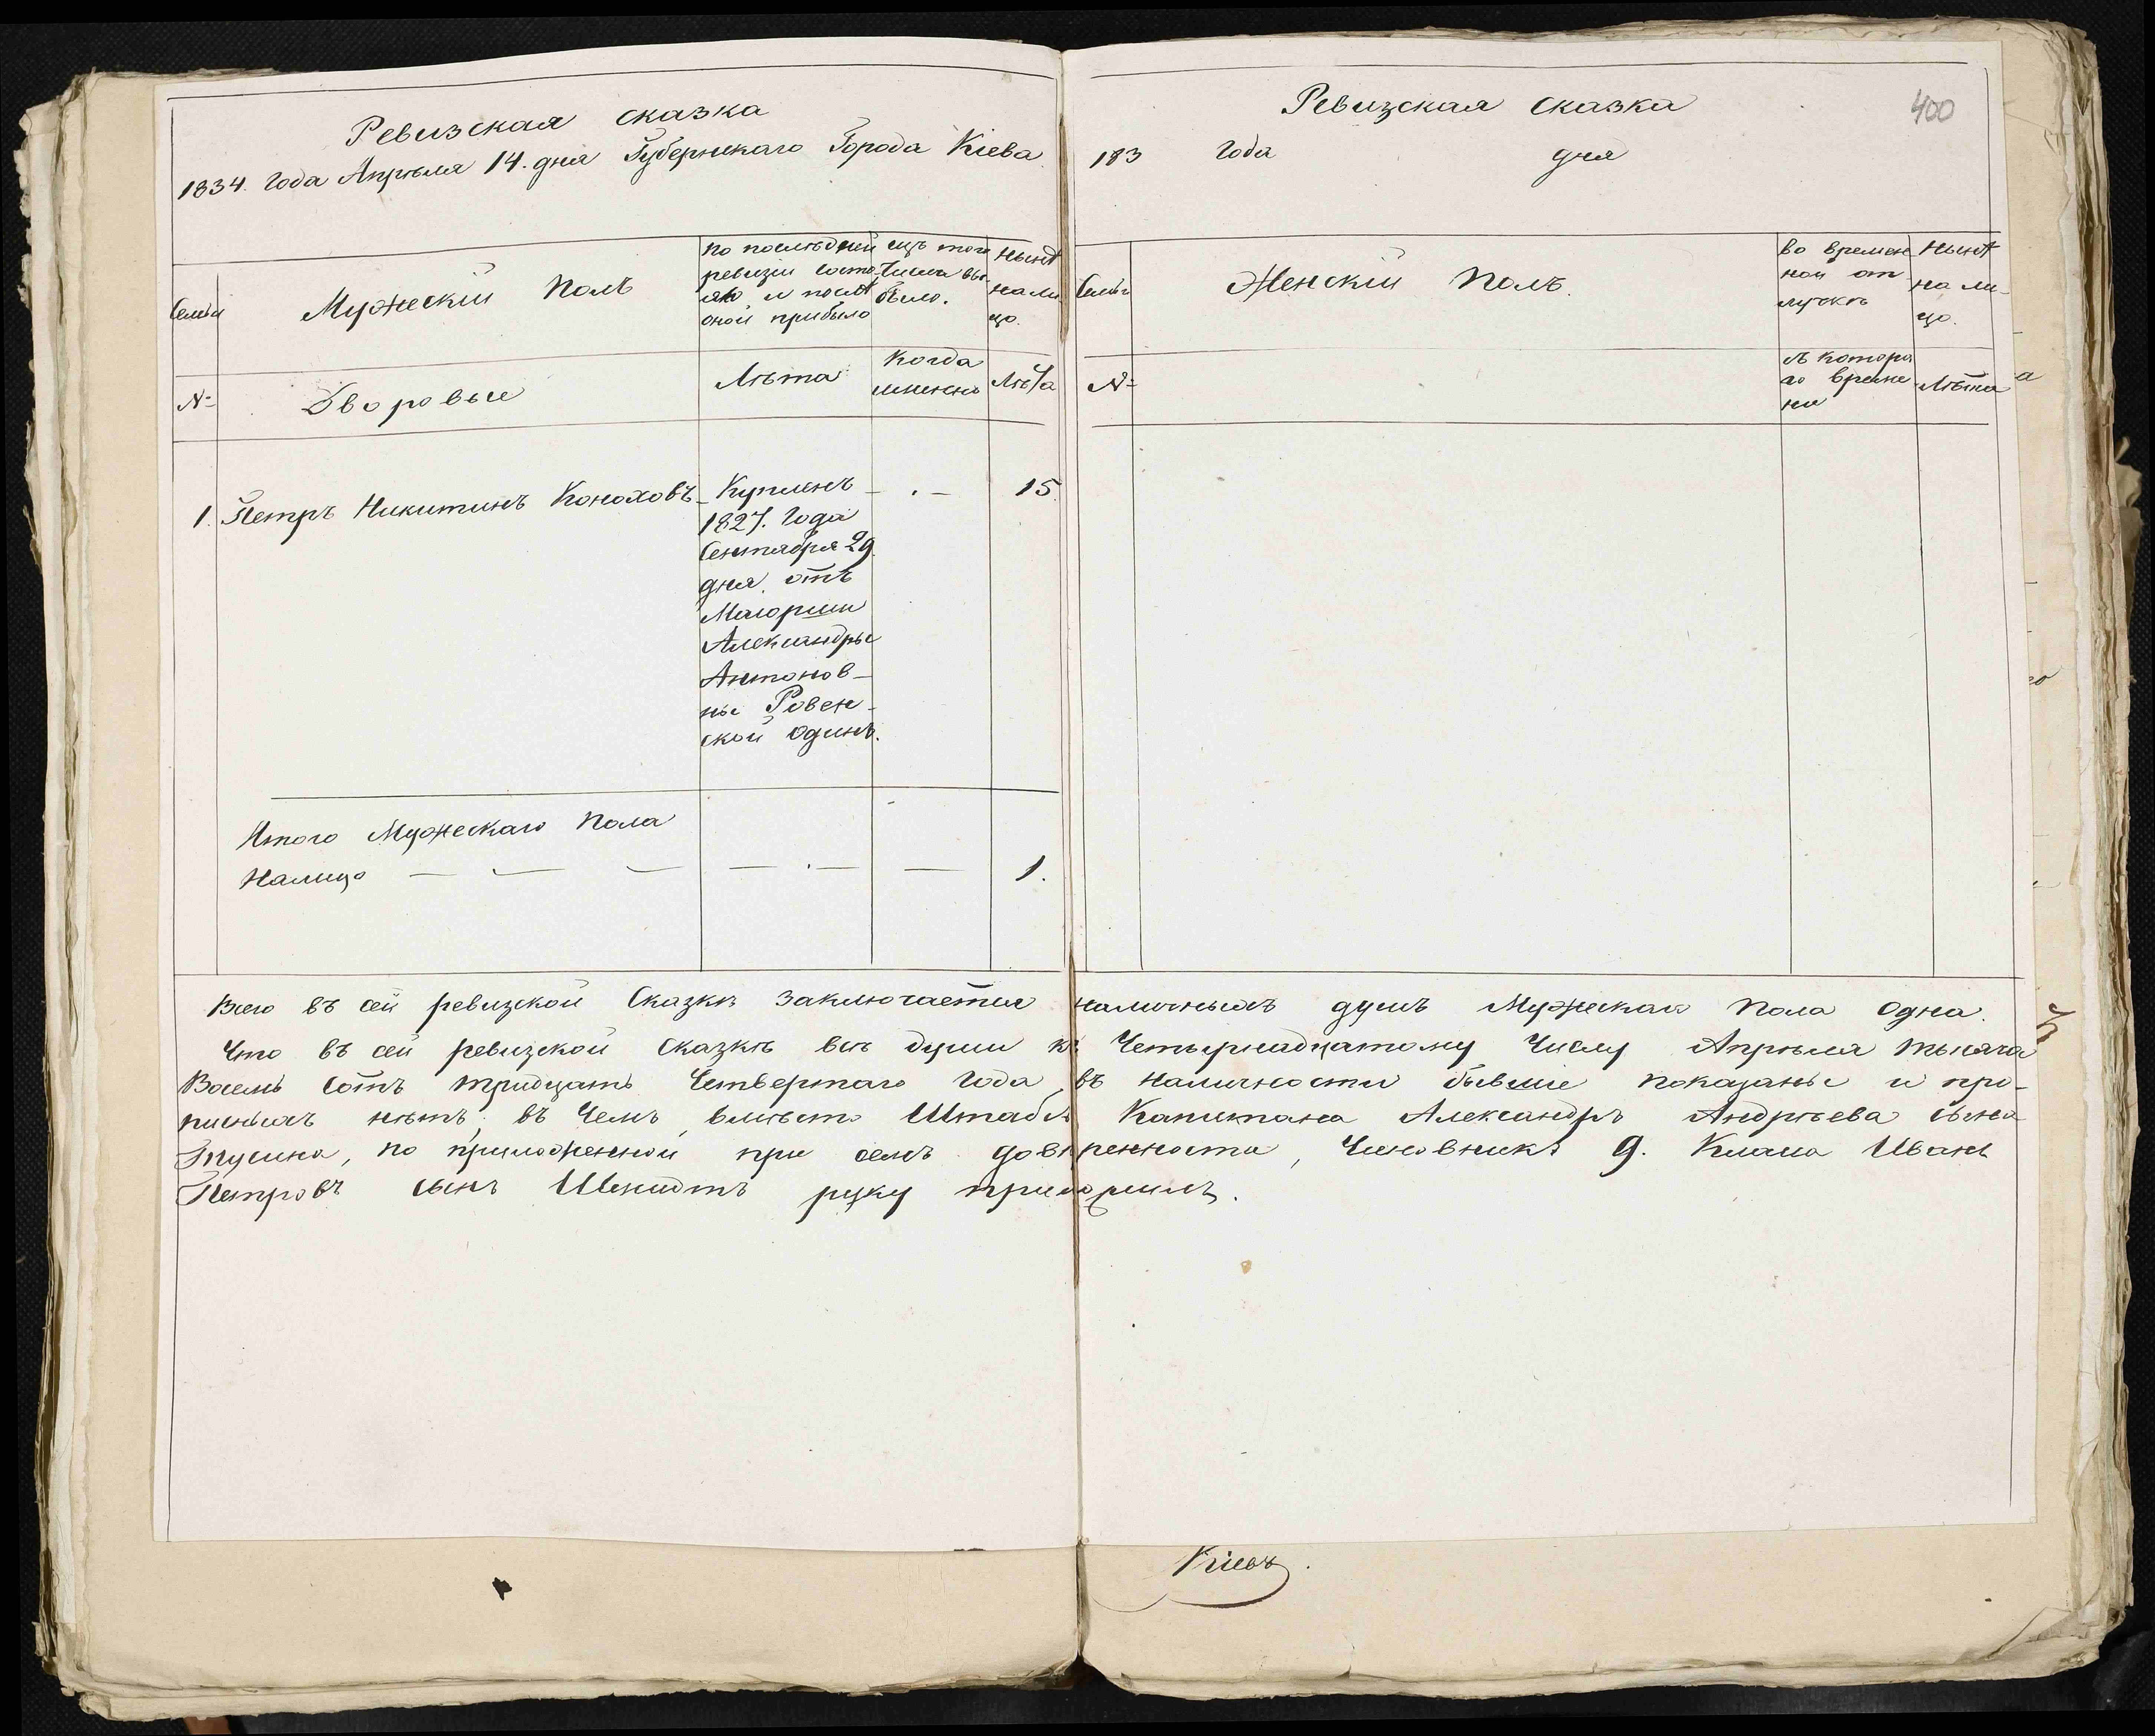 Ревизская сказка
1834. года Апрѣля 14. дня Губернскаго Города Кіева
Семьи
Мужескій Полъ
по послѣдней
ревизіи состо
яло и послѣ
оной прибыло
изъ того
числа вы
было.
Нынѣ
на ли-
цо.
№
Дворовые
Лѣта
Когда
именно
Лѣта
1. Петръ Никитинъ Коноховъ - Купленъ - . - 15.
1827. года
Сентября 29.
дня. отъ
Маіорши
Александры
Антонов-
ны Ровен-
ской одинъ.
Итого Мужескаго Пола
Налицо 1.
Ревизская Сказка
400
183 года дня
Семьи
Женскій Полъ.
во времен
ной от
лучкѣ
Нынѣ
на ли-
цо.
№
съ котора
го време
ни
Лѣта
Всего въ сей ревизской Сказкѣ заключается наличныхъ душъ Мужескаго Пола одна.
Что въ сей ревизской Сказкѣ всѣ души къ Четырнадцатому Числу Апрѣля тысяча
Восемь сотъ тридцать Четвертаго Года въ наличности бывшіе показаны и про-
писныхъ нѣтъ, въ Чемъ, вмѣсто Штабсъ Капитана Александръ Андрѣева сына
по приложенной при семъ довѣренности, Чиновникъ 9. Класа Иванъ
Петровъ сынъ Шмидтъ руку приложилъ.
Кіевъ.